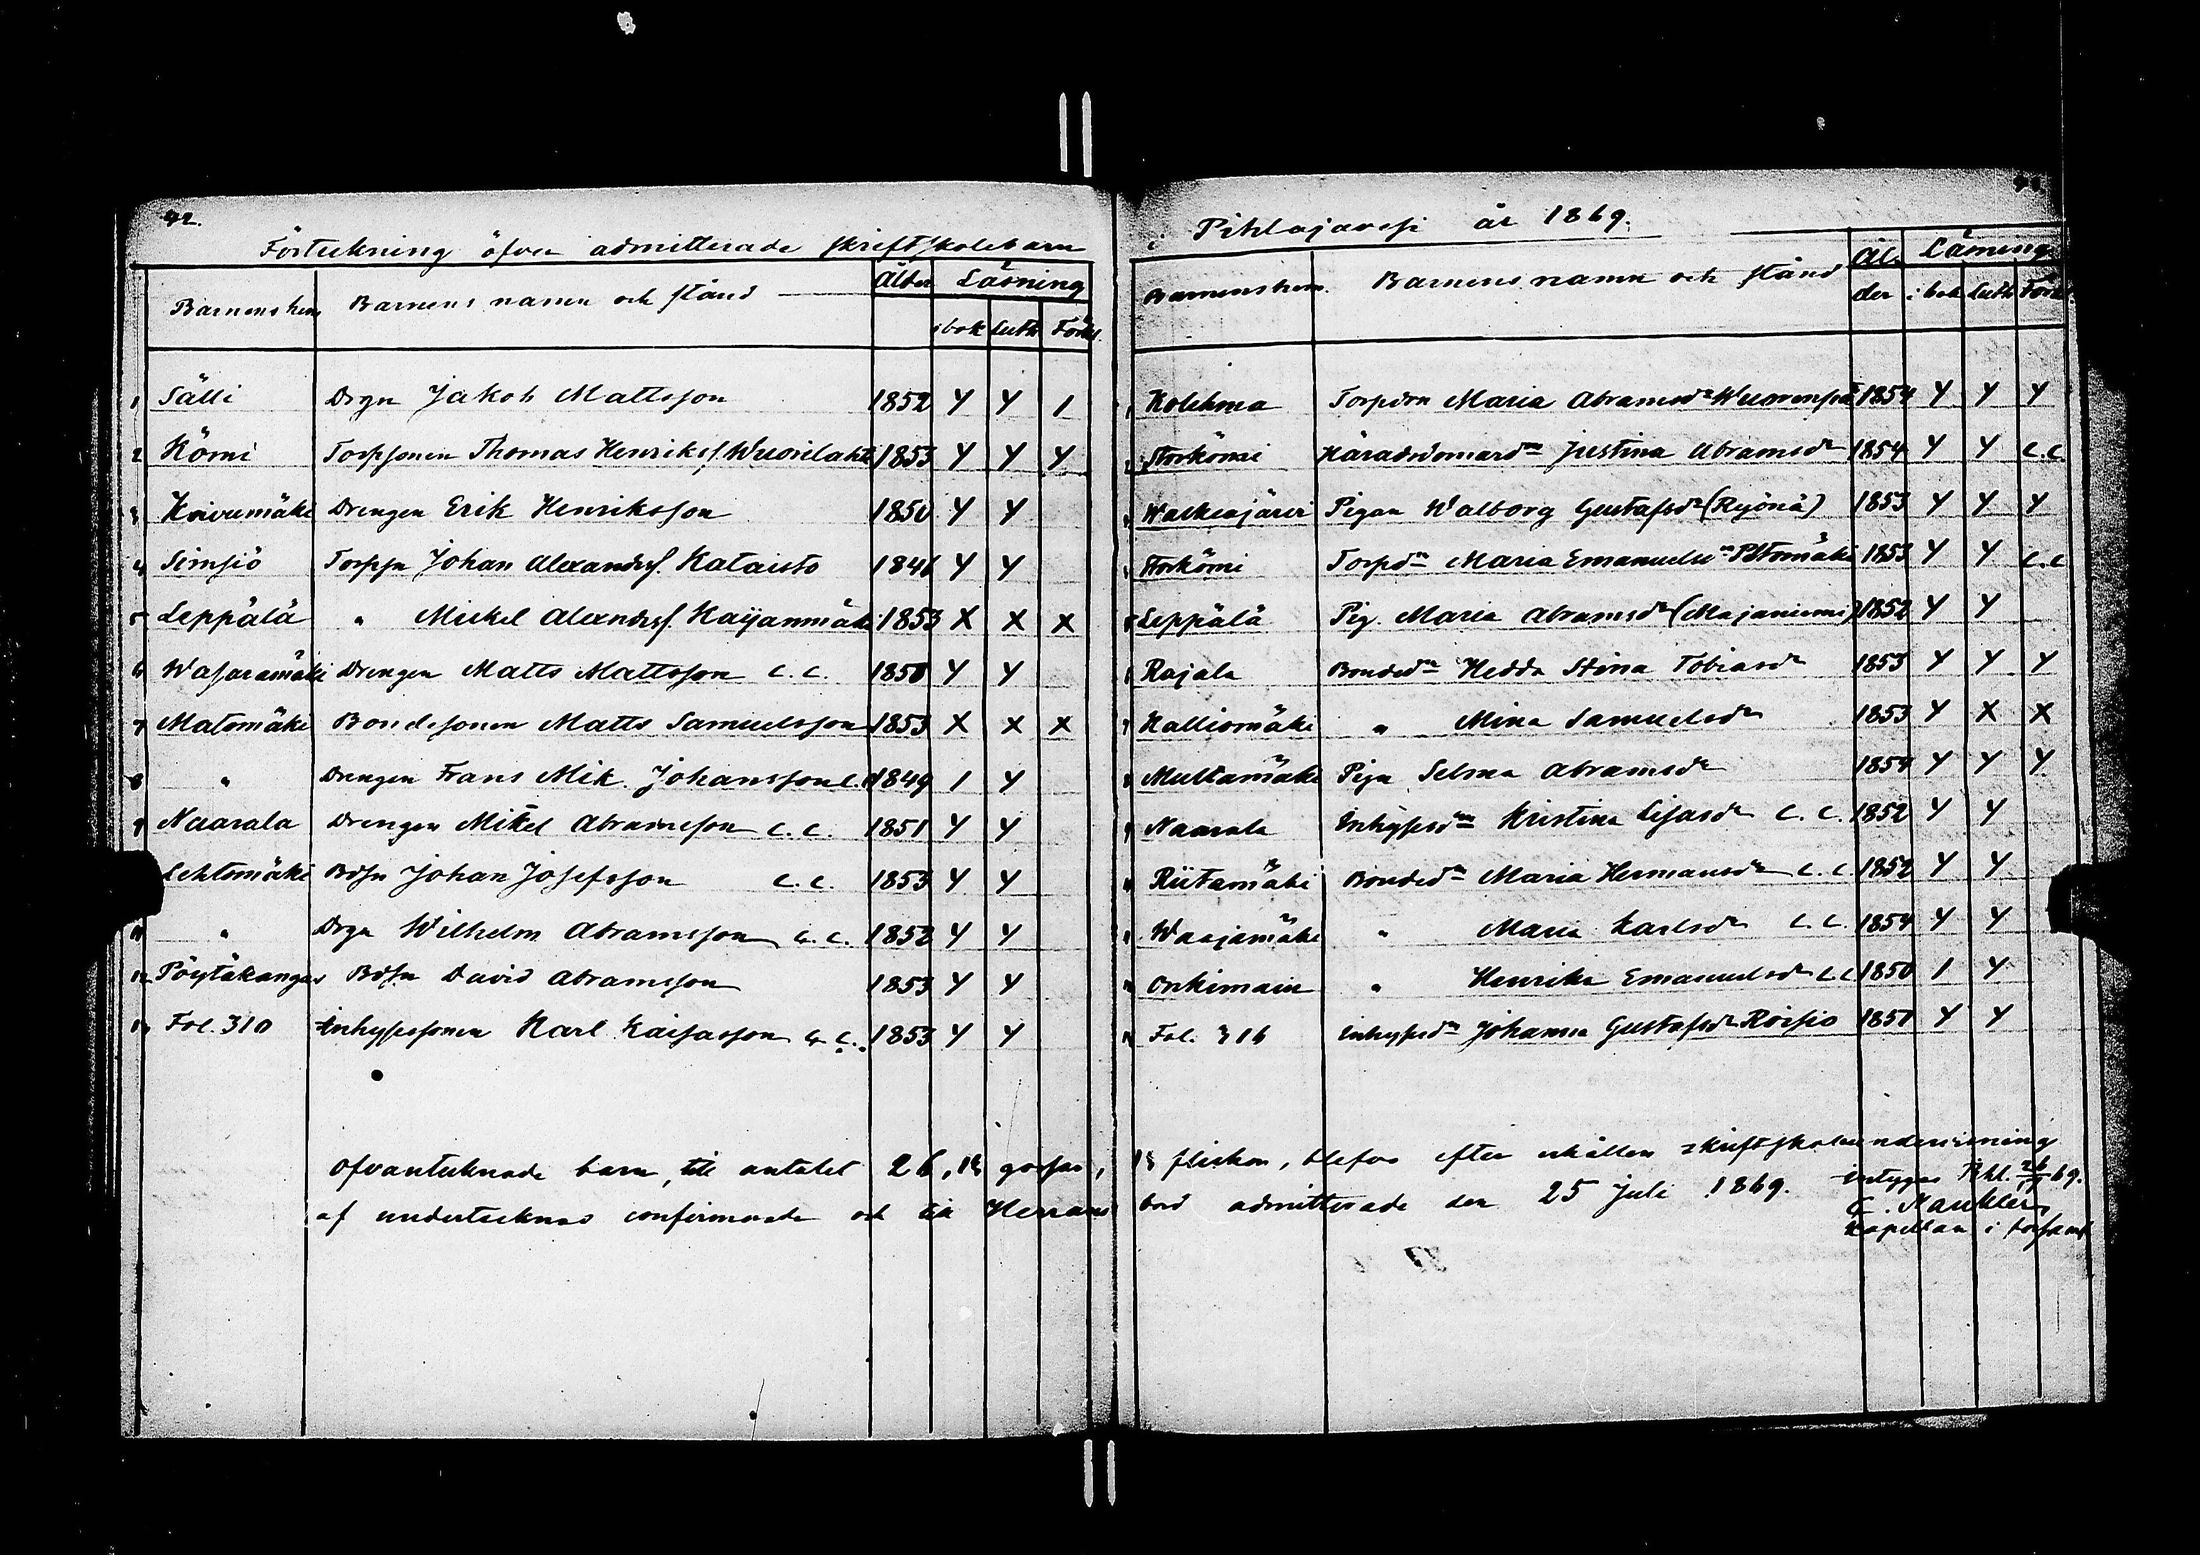 42.
Förteckning öfver admitterade skriftskolebarn
Barnens hem Barnens namn och stånd Ålder Läsning
i bok Luth. Förkl.
1 Sälli Drgn Jakob Mattsson 1852 Y Y 1
2 Kömi Torpsonen Thomas Henrikss. Wuorilahti 1853 Y Y Y
3 Koivumäki Drengen Erik Henriksson 1850 Y Y
4 Simsiö Torpsn Johan Alexanderss. Kataisto 1846 Y Y
5 Leppälä " Mickel Alexanderss. 1853 X X X
6 Wasaramäki Drengen Matts Mattsson c. c. 1850 Y Y
7 Matomäki Bondesonen Matts Samuelsson 1853 X X X
8 " Drengen Frans Mik. Johansson c. c. 1849 1 Y
9 Naarala Drengen Mikel Abramsson c. c. 1851 Y Y
Lehtomäki Bdsn Johan Josefsson c. c. 1853 Y Y
11 " Drgn Wilhelm Abramsson c. c. 1852 Y Y
12 Pöytäkangas Bdsn David Abramsson 1853 Y Y
13 Fol. 310 Inhysessonen Karl Kaisasson c. c. 1853 Y Y
Ofvantecknade barn, till antalet 26, 13 gossar,
af undertecknad confirmerade och till Herrans
i Pihlajavesi år 1869.
Barnens hem. Barnens namn och stånd Ålder Läsning
i bok Luth. Förkl.
Kolehma Torpdrn Maria Abramsdr 1854 Y Y Y
Storkömi Häradsdomaredrn Justina Abramsdr 1854 Y Y c. c.
Walkeajärvi Pigan Walborg Gustafsdr (Ryönä) 1853 Y Y Y
Storkömi Torpdrn Maria Emanuelsdr Peltomäki 1853 Y Y c. c.
5 Leppälä Pig. Maria Abramsdr (Majaniemi) 1852 Y Y
Rajala Bondedrn Hedda Stina Tobiasdr 1853 Y Y Y
7 Kalliomäki " Mina Samuelsdr 1853 Y X X
8 Multamäki Pign Selma Abramsdr 1854 Y Y Y
9 Naarala Inhysesdrn Kristina Lisasdr c. c. 1852 Y Y
Riitamäki Bondedrn Maria Hermansdr c. c. 1852 Y Y
Waajamäki " Maria Karlsdr c. c. 1854 Y Y
Onkimain " Henrika Emanuelsdr c. c. 1850 1 Y
Fol. 316 Inhysesdrn Johanna Gustafsdr Roisio 1851 Y Y
13 flickor, blefvo efter erhållen skriftskoleundervisning
bord admitterade den 25 Juli 1869. intygar Pihl. 69.
Kapellan i förs.